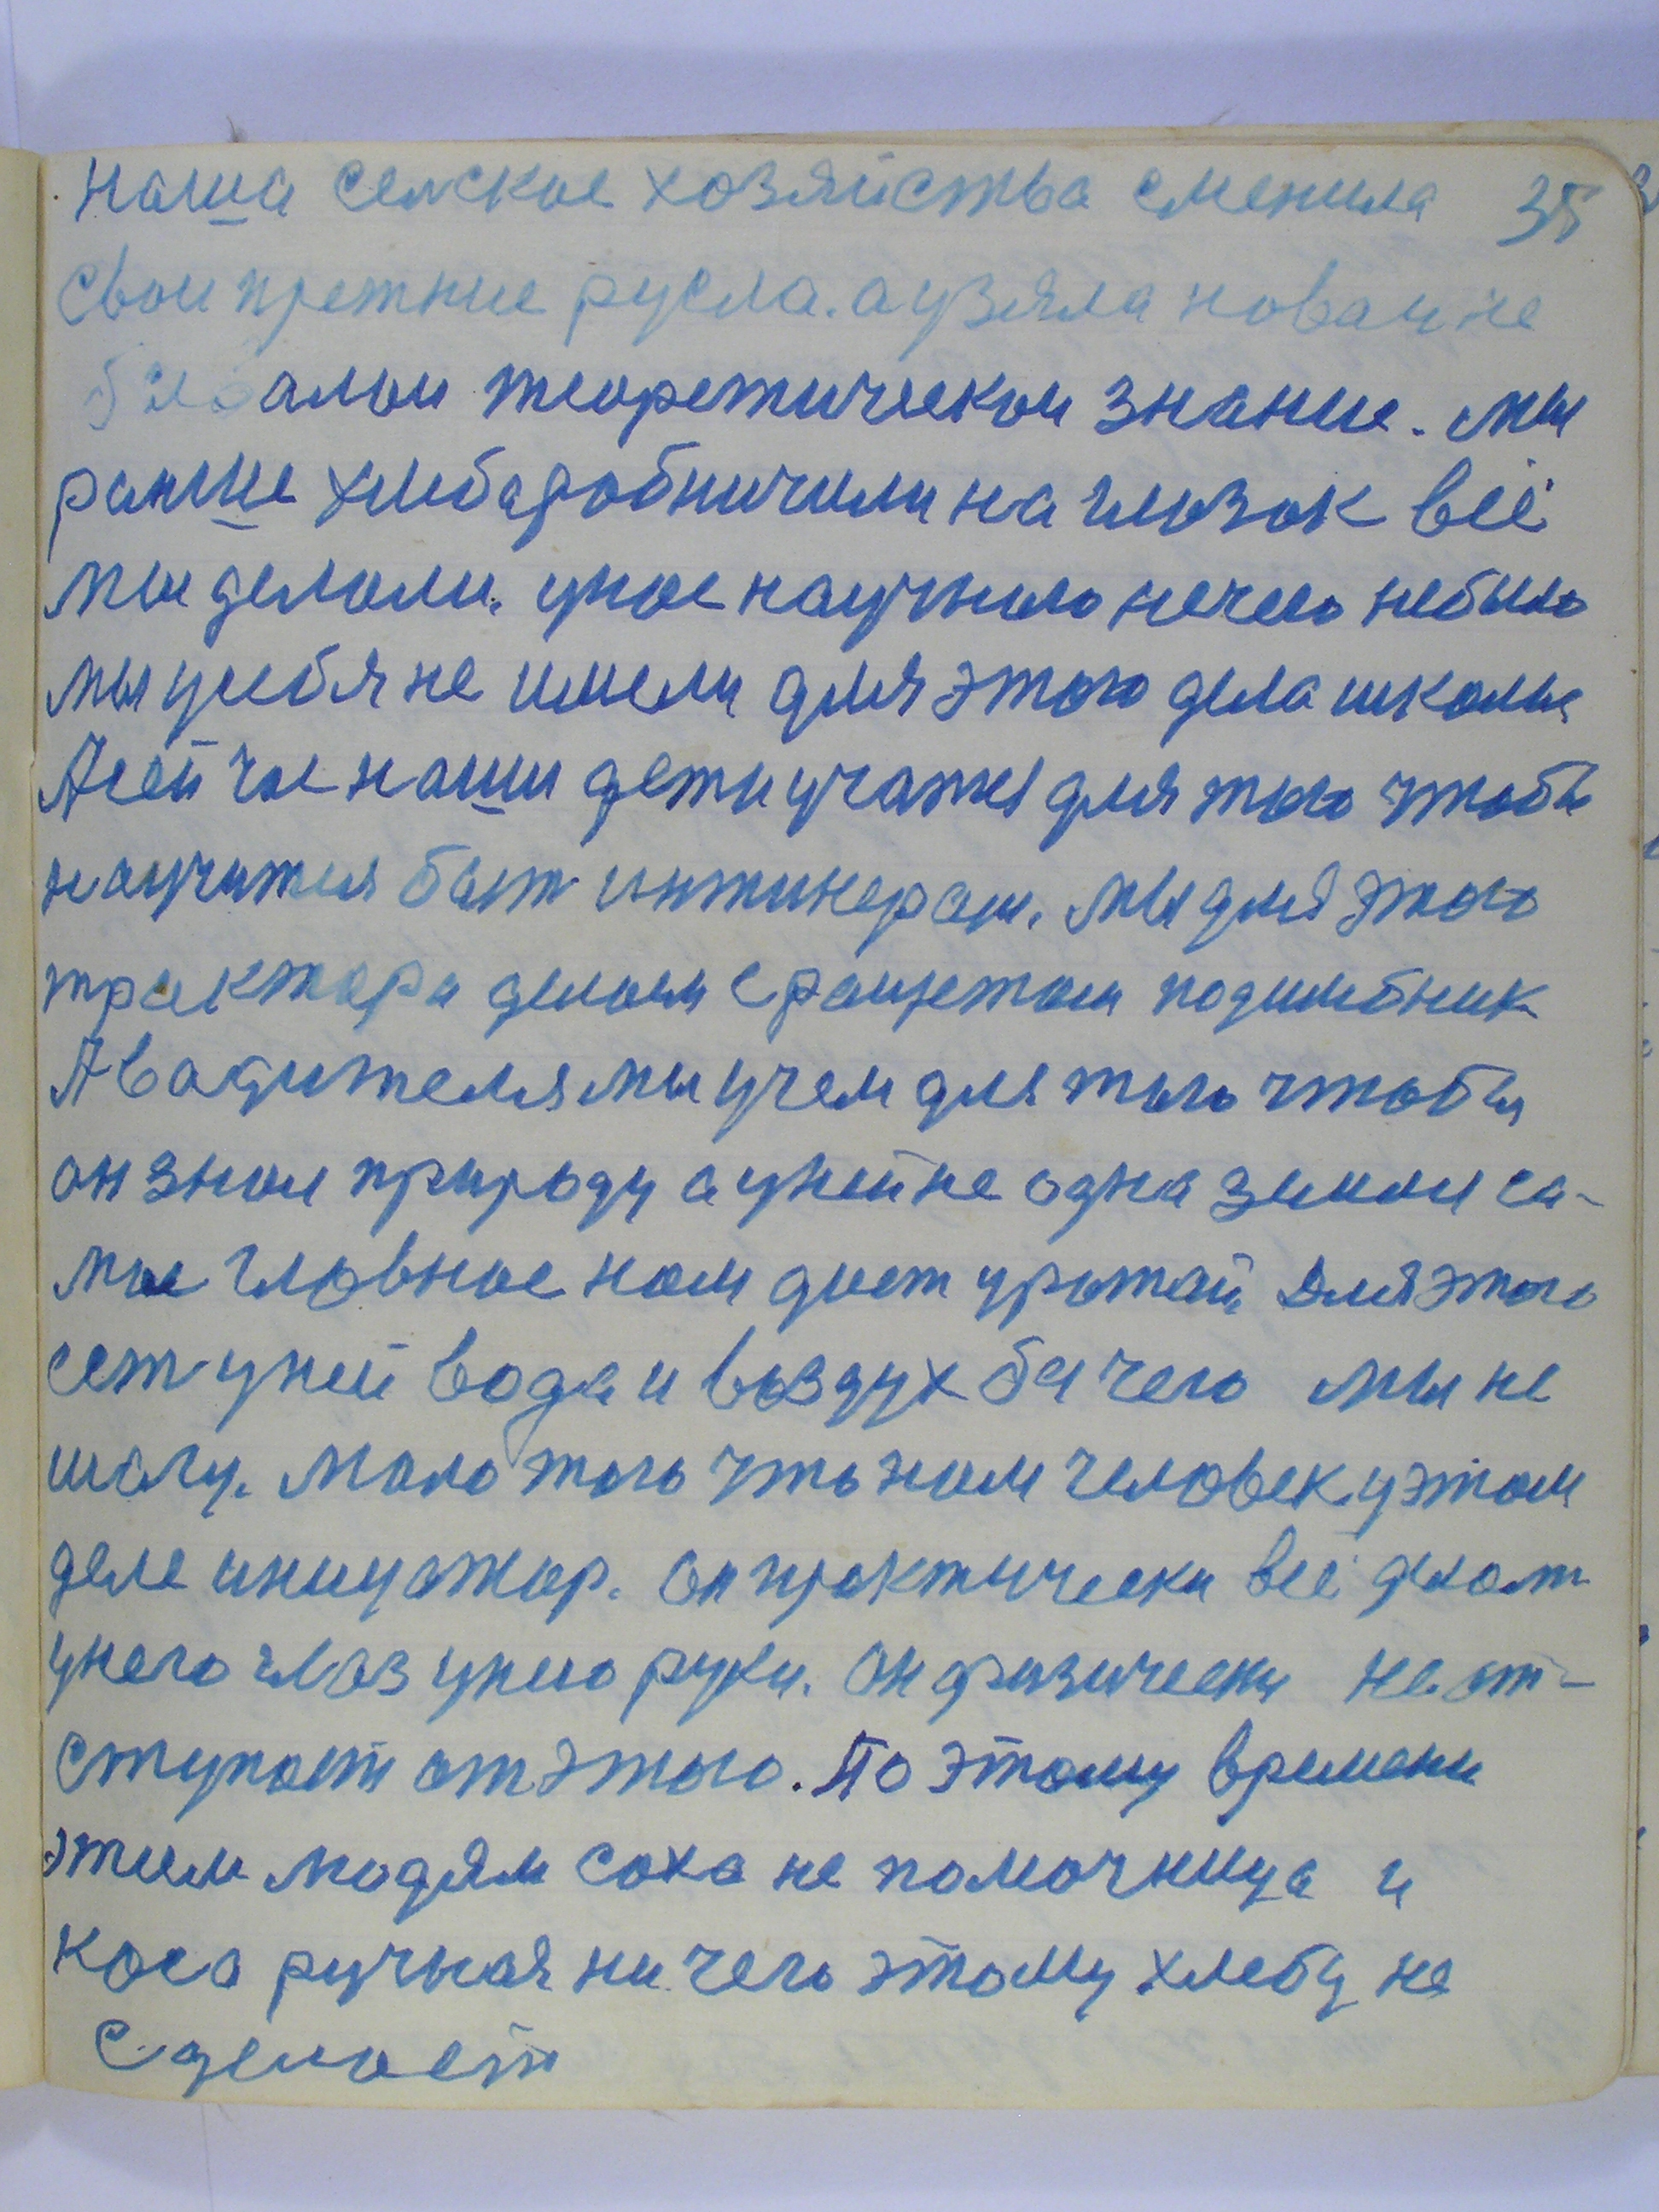 Наша селское хозяйства сменила 35
Свои прежние русла. а узяла новаи не
алои теоретическои знание. мы
ранше хлебаробничили на глазок всё
мы делали. унас научнаго нечего небыло
мы усебя не имели для этого дела школы
Асейчас наши дети учатся для того чтобы
научится быт инжинерам. мы для этого
трактора делаем с расчетам подшибник
А вадителя мы учем для того чтобы
он знал природу а уней не одна земля са-
мае главное нам дает урожай Для этого
ест уней вода и воздух бя чего мы не
шагу. Мало того что нам человек уэтам
деле инициатор. он практически всё делает
унего глаз унего руки. Он физически не от-
ступает от этого. По этому времени
этим людям соха не помочница и
коса ручная ни чего этому хлебу не
Сделает